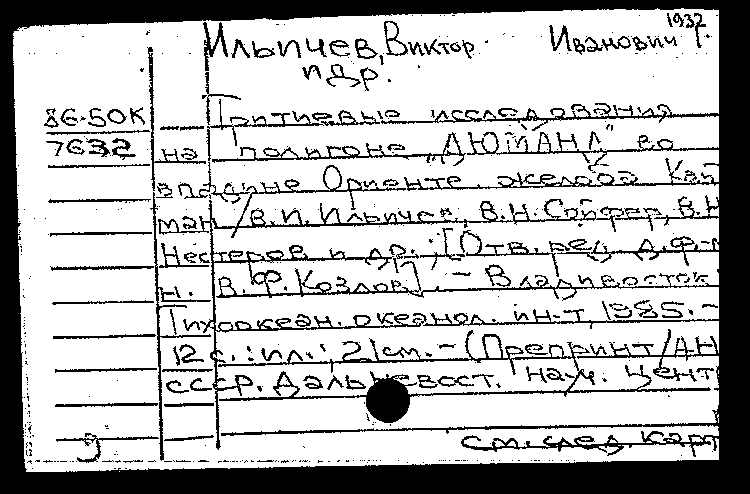 1932
Ильичев, Виктор Иванович г.
и др.
86-50К Тритиевые исследования
7632 на полигоне "ДЮМАНД" во
впадине Ориенте желоба Кай
ман / В.И. Ильичев, В.Н. Сойфер, В.Н
Нестеров и др.; [Отв. ред. д.ф.-м
н. В.Ф. Козлов]. - Владивосток
Тихоокеан. океанол. ин-т, 1985. -
12 с. : ил.; 21 см. - (Препринт / АН
СССР. Дальневост. науч. центр
9 см. след. карт